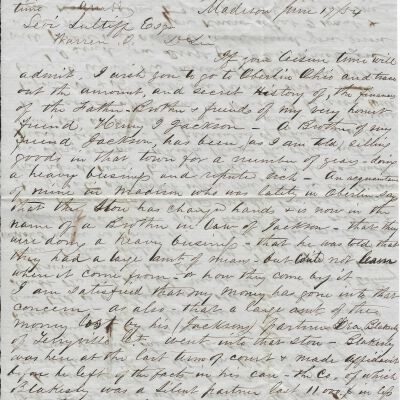 time
Madison June 17/54
Levi Sutliff Esqr
Warren O. Dr Sir
If your leisure time will
admit. I wish you to go to Oberlin Ohio and trace
out the amount, and secret History of, the finances
of the Father - Brother & friends of my very honest
friend, Henry J Jackson - A Brother of my
friend Jackson, has been, (as I am told) selling
goods in that town for a number of years - doing
a heavy business and reputed rich - An acquaintance
of mine in Madison who was lately in Oberlin say
that the Store has changed hands & is now in the
name of a Brother in law of Jackson - that they
were doing a heavy business - that he was told that
they had a large amt of means - but could not learn
where it come from - or how they come by it
I am satisfied that my money has gone into that
concern - as also - that a large amt of the
money lost by his (Jacksons) partner Blakesly
of Terryville Ct. went into that Store - Blakesly
was here at the last term of court & made affidavit
he left of the facts in his case - the Co. of which
Blakesly was a Silent partner lost 11.000$ in